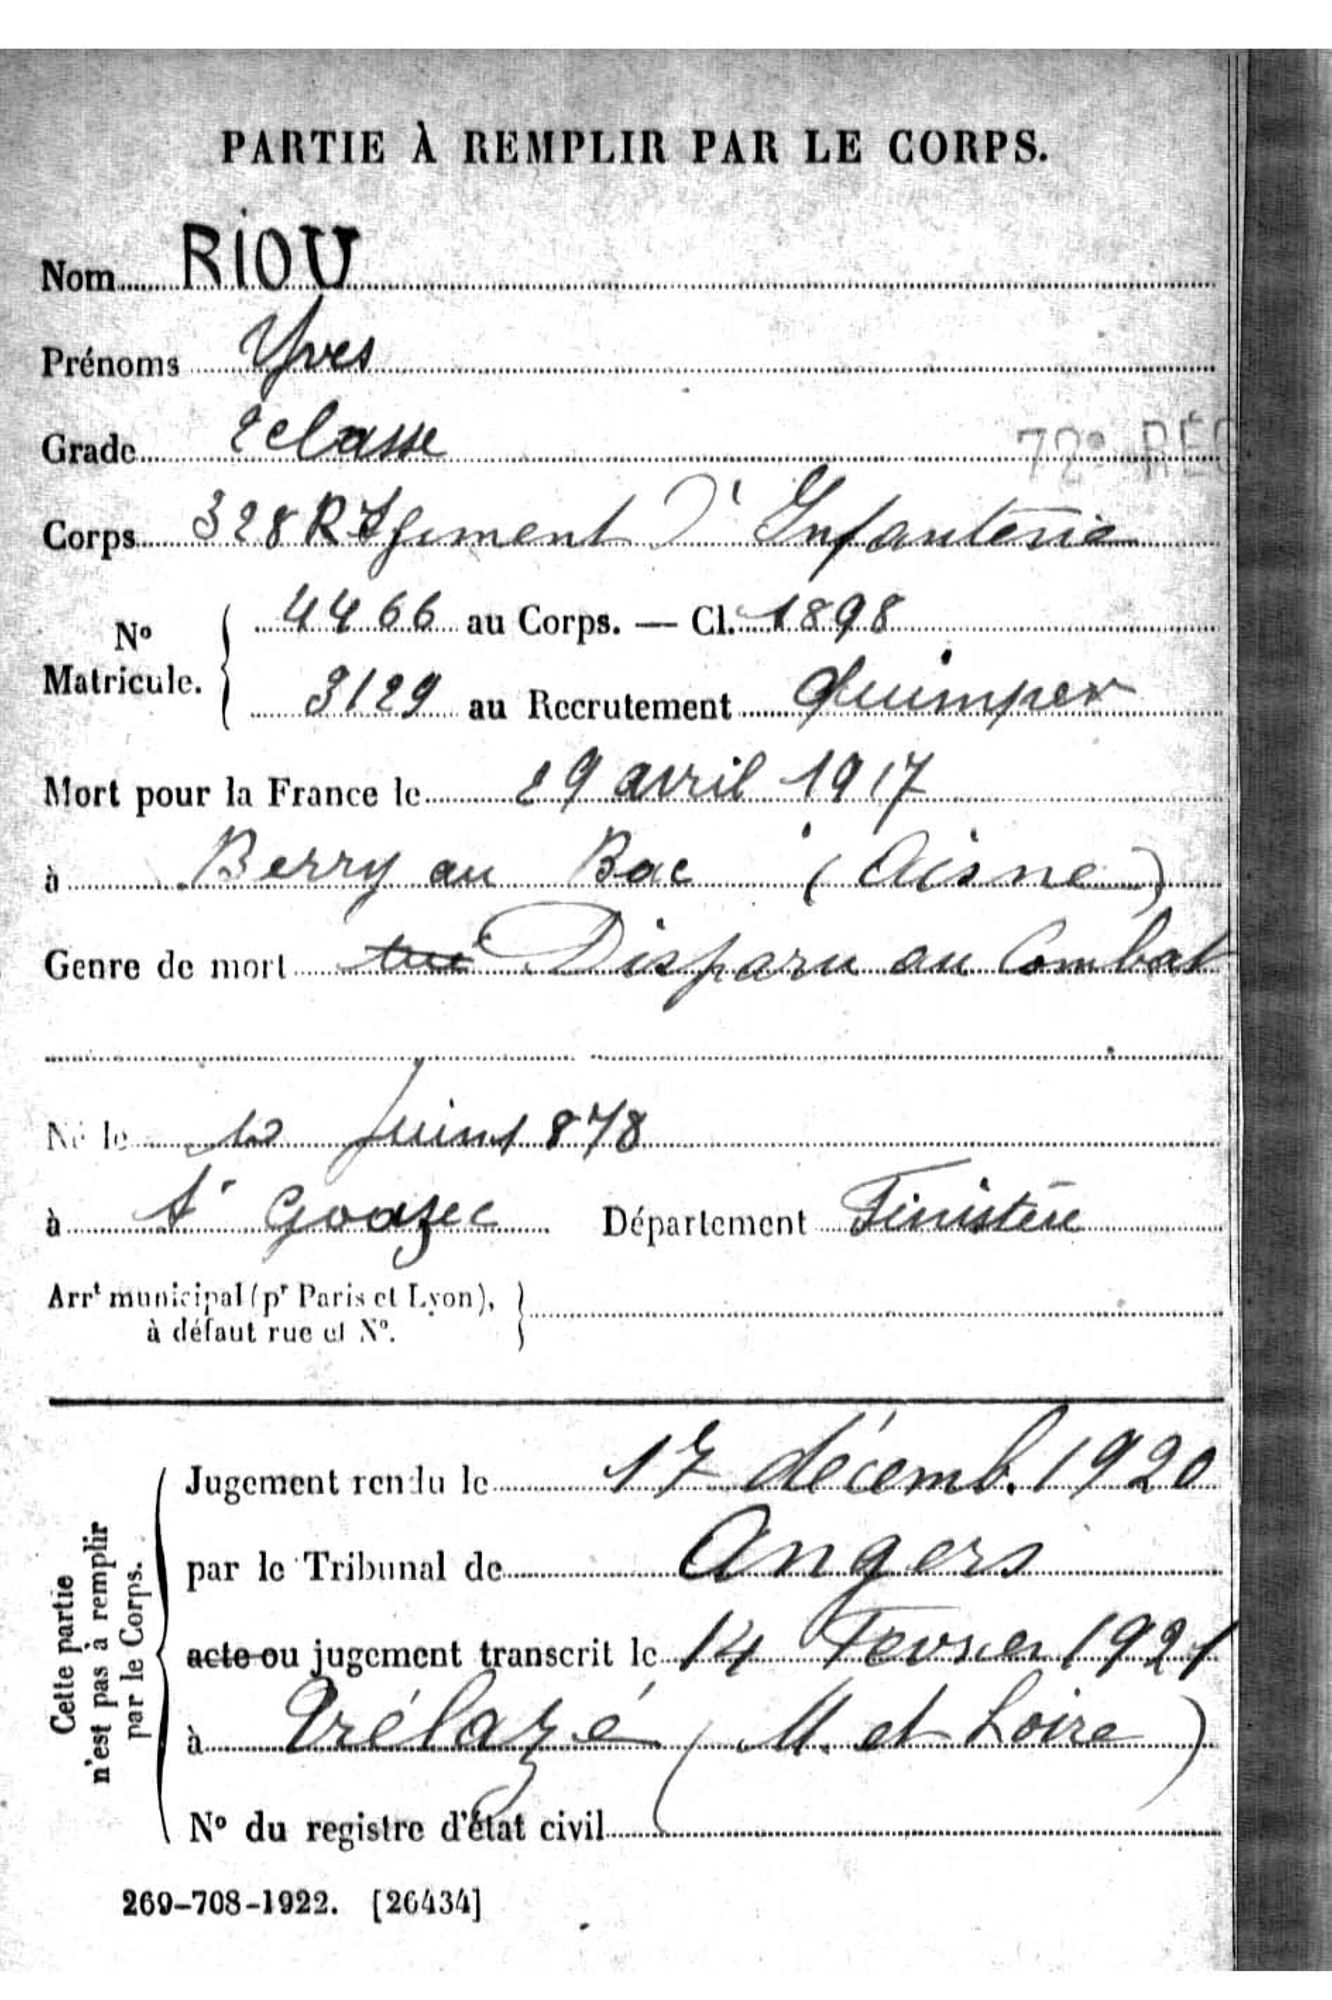 PARTIE À REMPLIR PAR LE CORPS.
Nom RIOU
Prénoms Yves
Grade 2 classe
72e RÉG
Corps 328 Régiment d'Infanterie
No Matricule. 4466 au Corps. — Cl. 1898
3129 au Recrutement Quimper
Mort pour la France le 29 avril 1917
à Berry au Bac (Aisne)
Genre de mort tué Disparu au Combat
Né le 10 Juin 1878
à St Goazec Département Finistère
Arrt municipal (pr Paris et Lyon),
à défaut rue et No.
Cette partie
n'est pas à remplir
par le Corps.
Jugement rendu le 17 décemb. 1920
par le Tribunal de Angers
acte ou jugement transcrit le 14 Fevrier 1921
à Trélazé (M. et Loire)
No du registre d'état civil
269-708-1922. [26434]